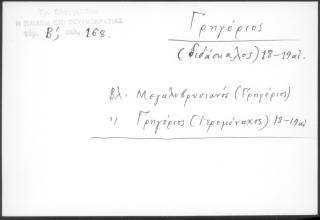 Τρ. Ευαγγελίδου
Η ΠΑΙΔΕΙΑ ΕΠΙ ΤΟΥΡΚΟΚΡΑΤΙΑΣ
τόμ. Β', σελ. 168.
Γρηγόριος
(διδάσκαλος) 18-19 αἰ.
βλ. Μεγαλοβρυσιανός (Γρηγόριος)
〃 Γρηγόριος (Ιερομόναχος) 18-19 αἰ